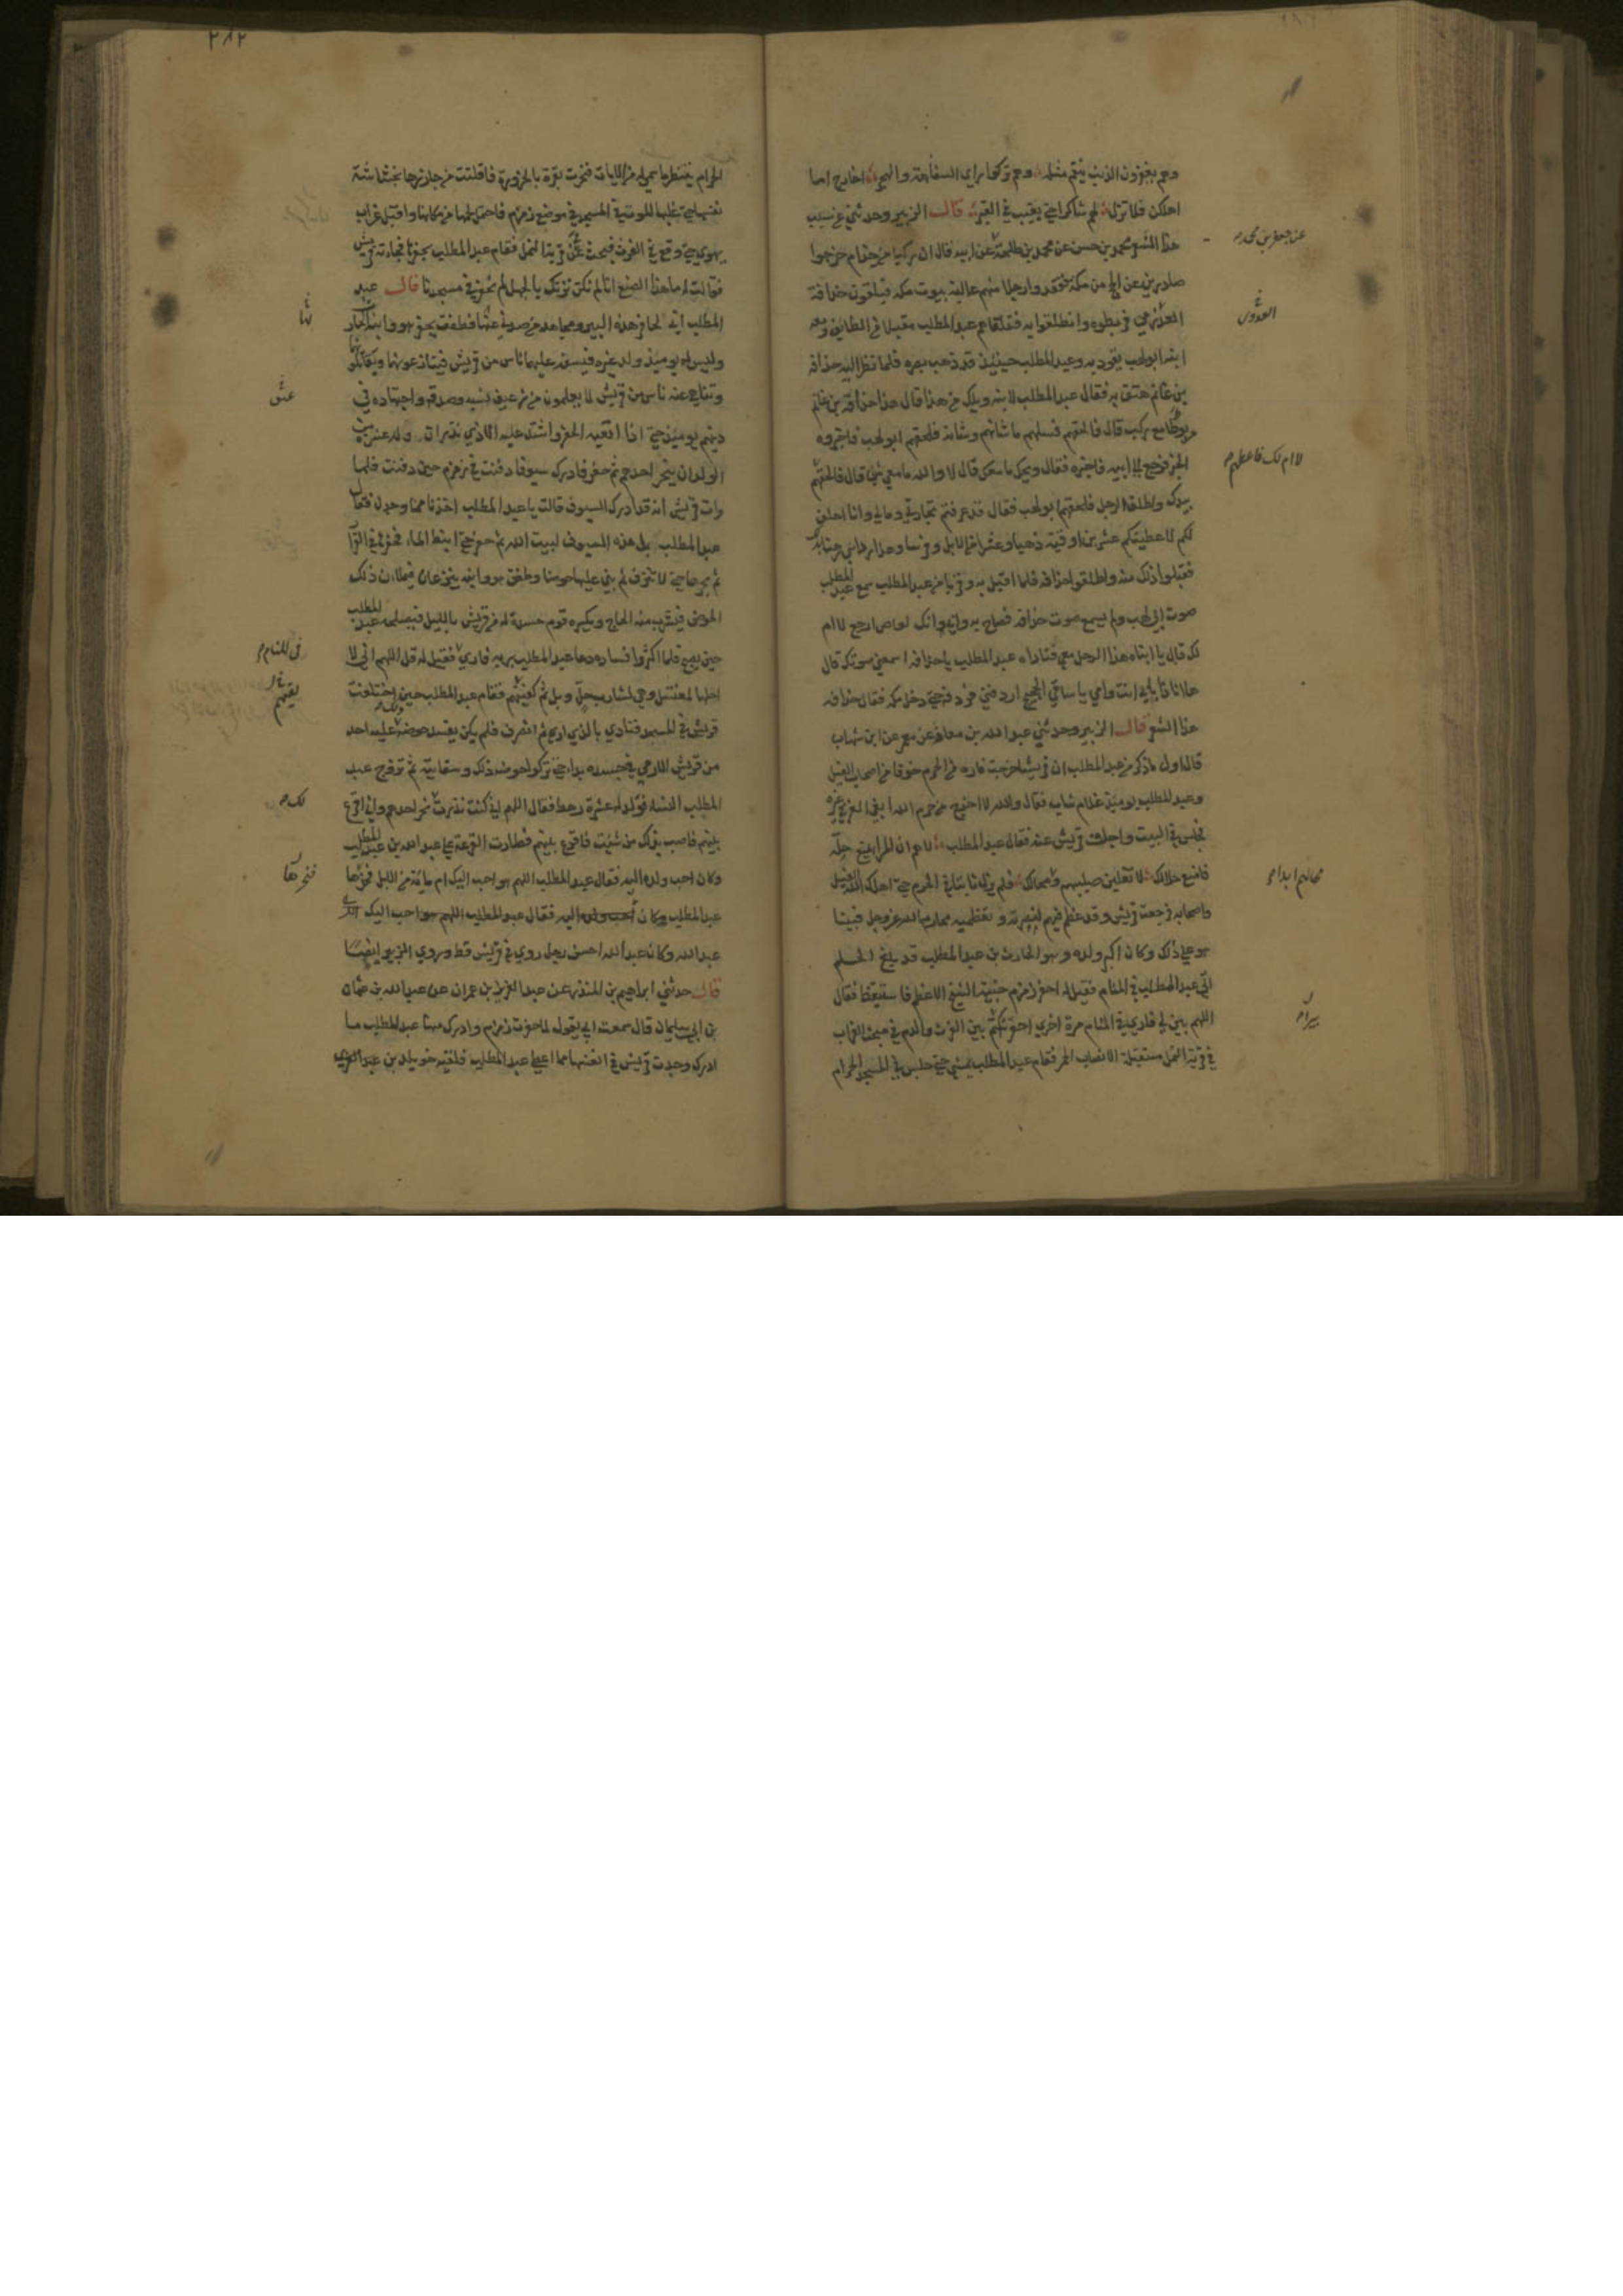 وهم يغفرون الذنب ينقم مثله وهم تركوا راي السفاهة والهجر اخارج اما
اهلكن فلا تزل لهم شاكرا حتى يغيب في القبر قالــ الزبير وحدثني عن سبب
هذا الشعر محمد بن حسن عن محمد بن طلحة عن ابيه قال ان ركبا من جذام خرجوا
صادرين عن الحج من مكة ففقدوا رجلا منهم عالية بيوت مكة فيلقون حذافة
العدوي فربطوه وانطلقوا به فتلقاهم عبد المطلب مقبلا من الطائف ومعه
ابنه ابو لهب يقود به وعبد المطلب حينئذ قد ذهب بصره فلما نظر اليه حذافة
بن غانم هتف به فقال عبد المطلب لابنه ويلك من هذا قال هذا حذافة بن غانم
مربوطا مع ركب قال فالحقهم فسلهم ما شانهم وشانه فلحقهم ابو لهب فاخبروه
الخبر فرجع الى ابيه فاخبره فقال ويحك ما معك قال لا والله ما معي شي قال فالحقهم
بيدك واطلق الرجل فلحقهم ابو لهب فقال قد عرفتم تجارتي ومالي وانا احلف
لكم لاعطينكم عشرين اوقية ذهبا وعشرا من الابل وفرسا وهذا رداي رهنا بذلك
فقبلوا ذلك منه واطلقوا حذافة فلما اقبل به وقربا من عبد المطلب سمع عبد المطلب
صوت ابي لهب ولم يسمع صوت حذافة فصاح به وابي وانك لعاص ارجع لا ام
لك قال يا ابتاه هذا الرجل معي فناداه عبد المطلب يا حذافة اسمعني صوتك قال
هاانا ذا بابي انت وامي يا ساقي الحجيج اردفني فردفه حتى دخل مكة فقال حذافة
هذا الشعر قالــ الزبير وحدثني عبد الله بن معاذ عن معمر عن ابن شهاب
قال اول ما ذكر من عبد المطلب ان قريشا خرجت فارة من الحرم خوفا من اصحاب الفيل
وعبد المطلب يومئذ غلام شاب فقال والله لا اخرج من حرم الله ابغي العز في غيره
فجلس في البيت واجلت قريش عنه فقال عبد المطلب لاهم ان المرا يمنع حله
فامنع حلالك لا تغلبن صليبهم ومحالك فلم يزل ثابتا في الحرم حتى اهلك الله الفيل
واصحابه فرجعت قريش وقد عظم فيهم لصبره وتعظيمه محارم الله عز وجل فبينا
هو على ذلك وكان اكبر ولده وهو الحارث بن عبد المطلب قد بلغ الحلم
اتي عبد المطلب في المنام فقيل له احفر زمزم خبية الشيخ الاعظم فاستيقظ فقال
اللهم بين لي فاري في المنام مرة اخري احفر تكتم بين الفرث والدم في مبحث الغراب
في قرية النمل مستقبلة الانصاب الحمر فقام عبد المطلب يمشي حتى جلس في المسجد الحرام
عن جعفر بن محمد
العدوي
لا ام لك فاعطهم
محالهم ابدا
٢٨٢
الحرام ينتظر ما سمي له من الايات فنحرت بقرة بالحزورة فانفلتت من جازرها بحشاشة
نفسها حتى غلبها الموت في المسجد في موضع زمزم فاحتمل لحمها من مكانها واقبل غراب
يهوي حتى وقع في الفرث فبحث عن قرية النمل فقام عبد المطلب يحفر فجاءته قريش
فقالت له ما هذا الصنع انا لم نكن نزنك بالجهل لم تحفر في مسجدنا قالــ عبد
المطلب اني لحافر هذه البير ومجاهد من صدني عنها فطفق يحفر هو وابنه الحارث
وليس له يومئذ ولد غيره فيسعى عليهما ناس من قريش فينازعونهما ويقاتلونهما
وتناهى عنه ناس من قريش لما يعلمون من عيق نسبه وصدقه واجتهاده في
دينهم يومئذ حتى اذا اتعبه الحفر واشتد عليه الاذي نذر ان وفا له عشرة من
الولد ان ينحر احدهم ثم حفر فادرك سيوفا دفنت في زمزم حين دفنت فلما
رات قريش انه قد ادرك السيوف قالت يا عبد المطلب اخذنا مما وجدت فقال
عبد المطلب بل هذه السيوف لبيت الله ثم حفر حتى انبط الماء فحفرها في القرار
ثم بحرها حتى لا تنزف ثم بنى عليها حوضا وطفق هو وابنه ينزعان فيملان ذلك
الحوض فيشرب منه الحاج ويكسره قوم حسدة له من قريش بالليل فيصلحه عبد المطلب
حين يصبح فلما اكثروا فساده دعا عبد المطلب ربه فاري فقيل له قل اللهم اني لا
احلها لمغتسل وهي لشارب حل وبل ثم كفيتهم فقام عبد المطلب حين اختلفت
قريش في المسجد فنادي بالذي اري ثم انصرف فلم يكن يفسد حوضه عليه احد
من قريش الا رمي في جسده بداء حتى تركوا حوضه ذلك وسقايته ثم تزوج عبد
المطلب النساء فولد له عشرة رهط فقال اللهم اني كنت نذرت نحر احدهم واني اقرع
بينهم فاصب بذلك من شئت فاقرع بينهم فطارت القرعة على عبد الله بن عبد المطلب
وكان احب ولده اليه فقال عبد المطلب اللهم هو احب اليك ام ماية من الابل فنحرها
عبد المطلب وكان احب ولده اليه فقال عبد المطلب اللهم هو احب اليك
عبد الله وكان عبد الله احسن رجل روي في قريش قط وروي الزبير ايضا
قالــ حدثني ابراهيم بن المنذر عن عبد العزيز بن عمران عن عبد الله بن عثمان
بن ابي سليمان قال سمعت ابي يقول لما حفرت زمزم وادرك منها عبد المطلب ما
ادرك وجدت قريش في انفسها مما اعطي عبد المطلب فلقيه خويلد بن عبد العزى
في المنام
لك